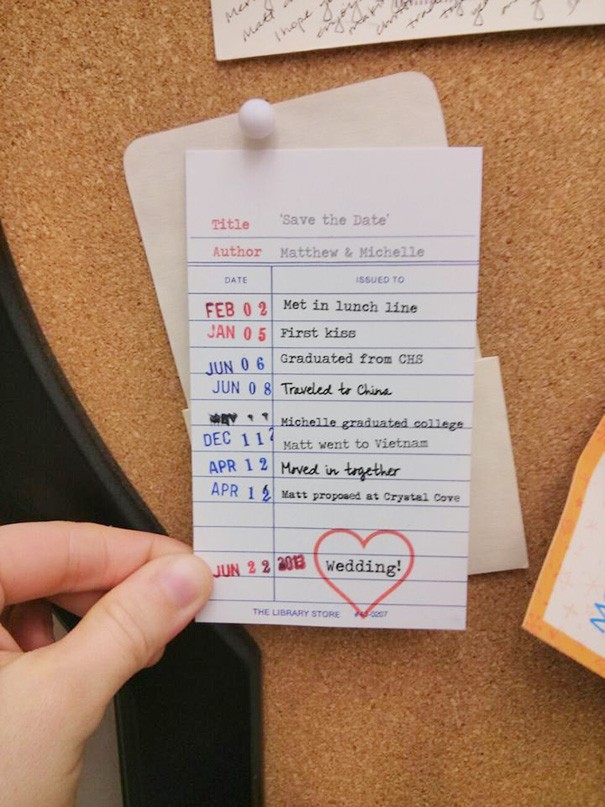 Matt
I hope
enjoy
Title 'Save the Date'
Author Matthew & Michelle
DATE ISSUED TO
FEB 0 2 Met in lunch line
JAN 0 5 First kiss
JUN 0 6 Graduated from CHS
JUN 0 8 Traveled to China
MAY 1 1 Michelle graduated college
DEC 1 1 Matt went to Vietnam
APR 1 2 Moved in together
APR 1 2 Matt proposed at Crystal Cove
JUN 2 2 2013 Wedding!
THE LIBRARY STORE #43-0207